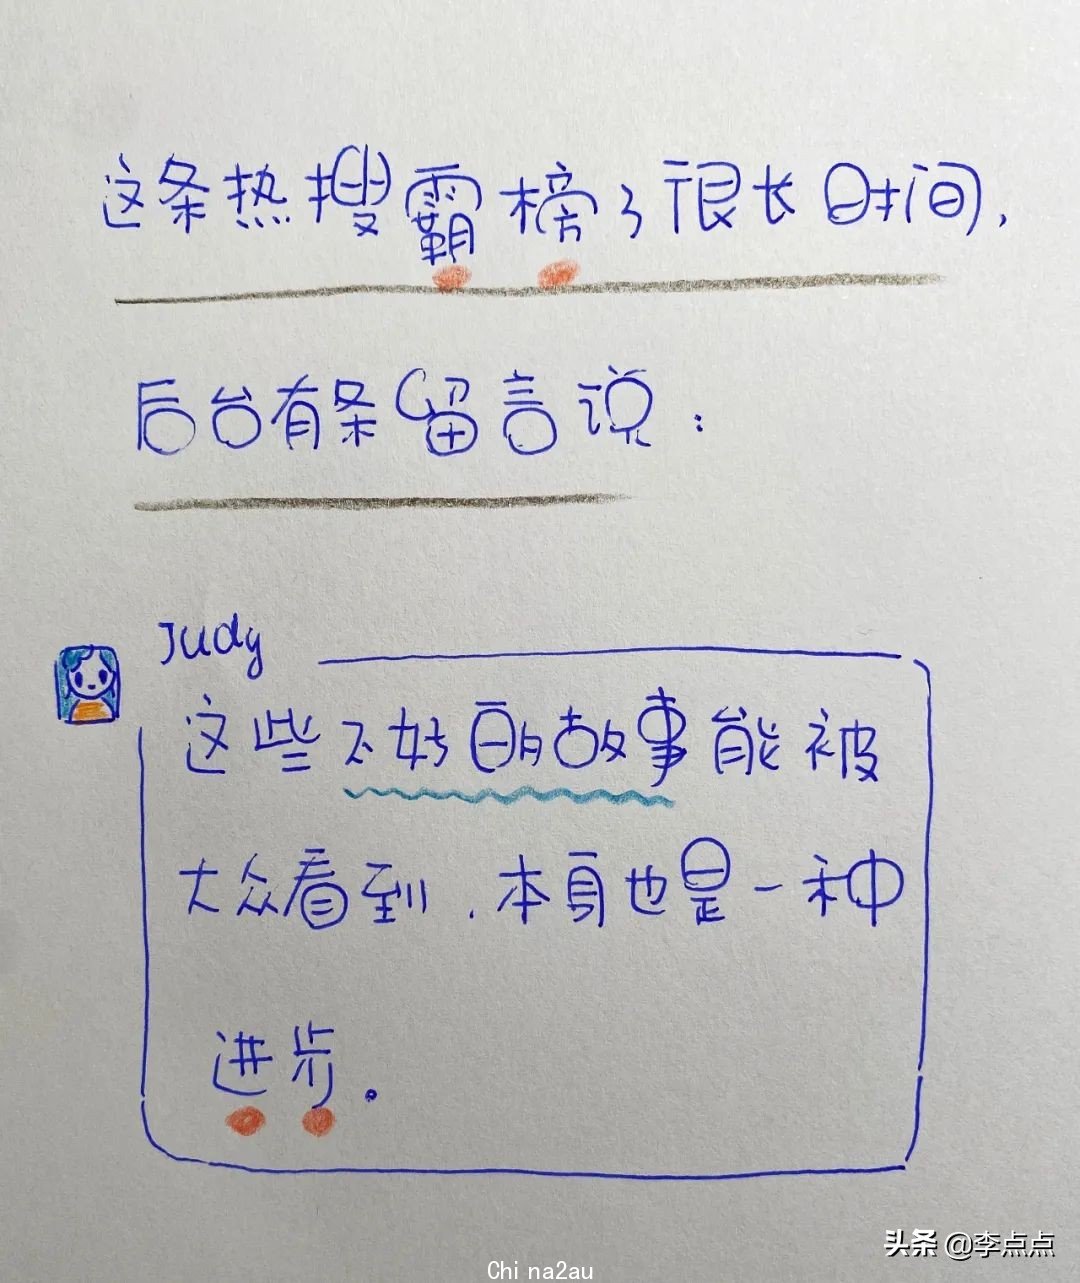 这条热搜霸榜了很长时间,
后台有条留言说:
Judy
这些不好的故事能被
大众看到,本身也是一种
进步。
头条 @李点点
China2au